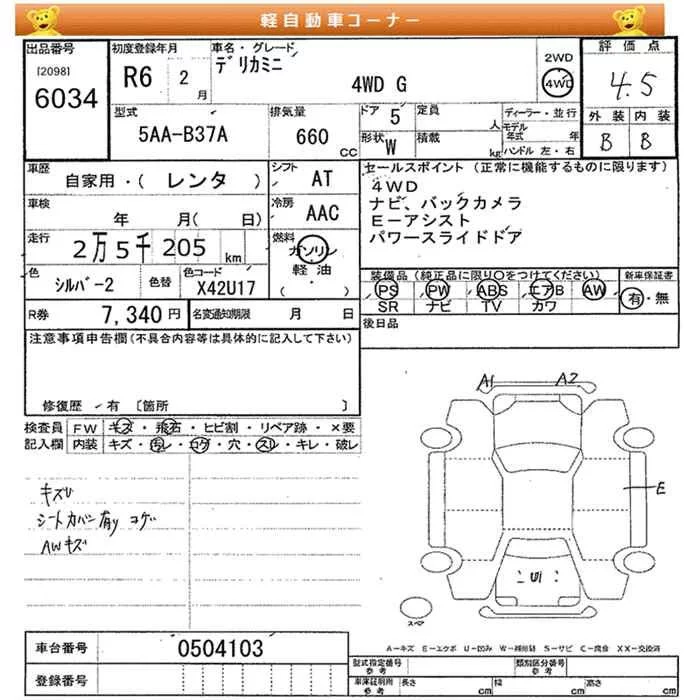 軽自動車コーナー
出品番号
[2098]
6034
初度登録年月
R6 2 月
車名・グレード
デリカミニ
4WD G
2WD
4WD
評価点
4.5
外装 内装
B B
型式
5AA-B37A
排気量
660 CC
ドア 5
定員 人
形状 W
積載 kg
ディーラー・並行
モデル年式 年
ハンドル 左・右
車歴
自家用・( レンタ )
シフト AT
車検
年 月( 日)
冷房 AAC
走行
2万5千205 km
燃料
ガソリン
軽油
( ・ )
色
シルバー2
色替
色コード
X42U17
セールスポイント (正常に機能するものに限ります)
4WD
ナビ、バックカメラ
E-アシスト
パワースライドドア
装備品 (純正品に限り○をつけてください)
PS PW ABS エアB AW
SR ナビ TV カワ
新車保証書
有・無
R券 7,340 円
名変通知期限 月 日
後日品
注意事項申告欄(不具合内容等は具体的に記入して下さい)
修復歴 ・有 〔箇所 〕
検査員記入欄
FW キズ・飛石・ヒビ割・リペア跡・×要
内装 キズ・汚レ・コゲ・穴・スリ・キレ・破レ
キズU
シートカバー有り コゲ
AWキズ
A1 A2
E
U1
スペア
A-キズ E-エクボ U-凹み W-補修跡 S-サビ C-腐食 XX-交換済
車台番号 0504103
登録番号
型式指定番号 参考
類別区分番号 参考
車庫証明用 参考
長さ cm 幅 cm 高さ cm